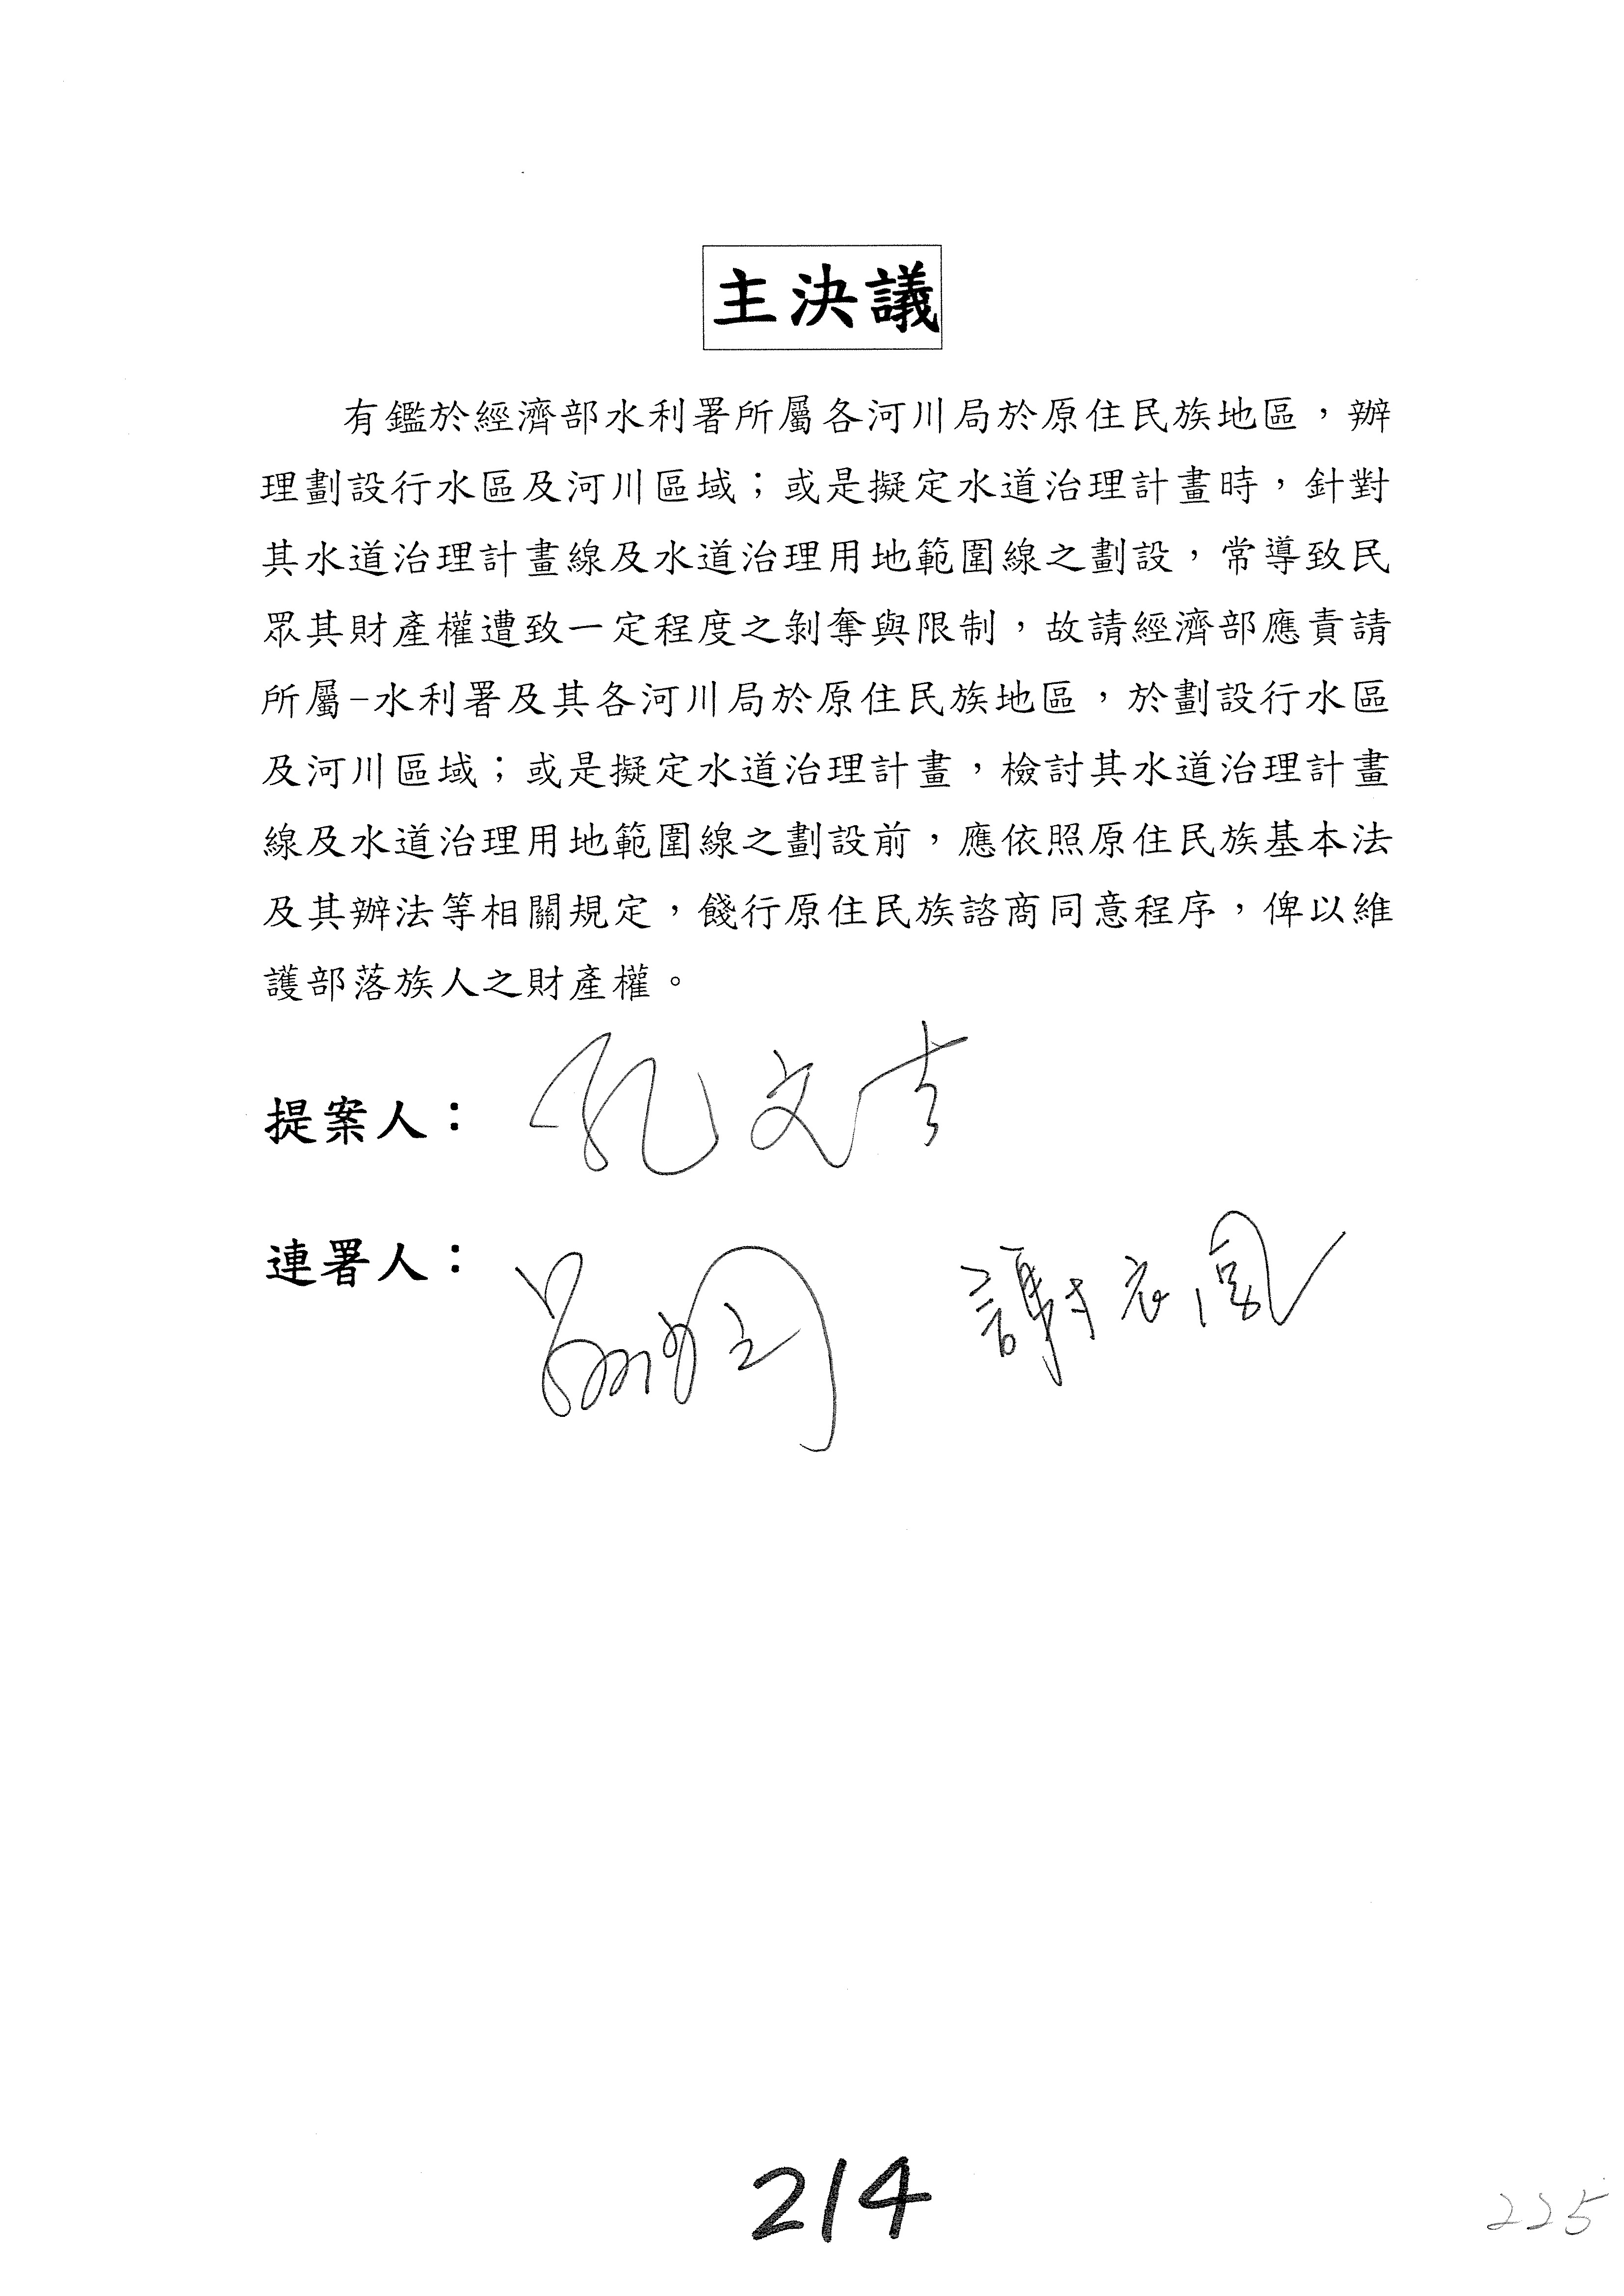 主決議
有鑑於經濟部水利署所屬各河川局於原住民族地區，辦
理劃設行水區及河川區域；或是擬定水道治理計畫時，針對
其水道治理計畫線及水道治理用地範圍線之劃設，常導致民
眾其財產權遭致一定程度之剝奪與限制，故請經濟部應責請
所屬-水利署及其各河川局於原住民族地區，於劃設行水區
及河川區域；或是擬定水道治理計畫，檢討其水道治理計畫
線及水道治理用地範圍線之劃設前，應依照原住民族基本法
及其辦法等相關規定，餞行原住民族諮商同意程序，俾以維
護部落族人之財產權。
提案人： 孔文吉
連署人： 謝衣鳳
214
225